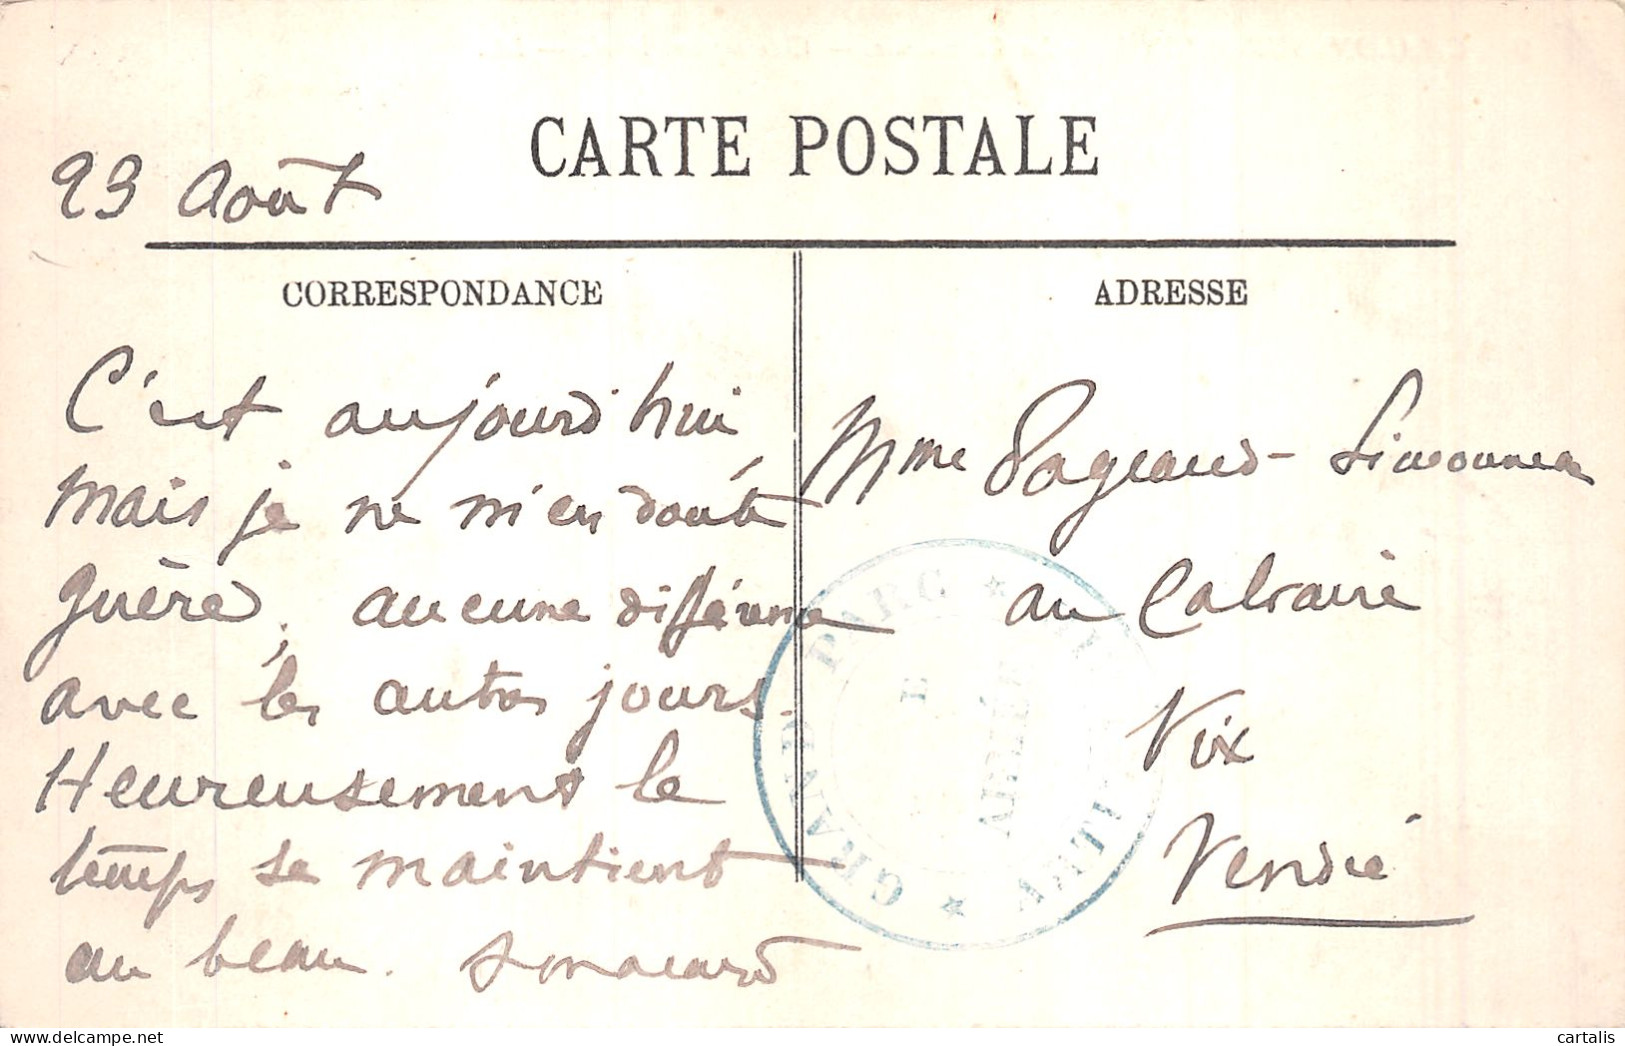 CARTE POSTALE
23 Août
CORRESPONDANCE
C'est aujourd'hui
mais je ne m'en doute
guère, aucune différence
avec les autres jours.
Heureusement le
temps se maintient
au beau.
ADRESSE
Mme Pageaud-Simonneau
au Calvaire
Vix
Vendée
GRAND PARC
ARMÉE
cartalis